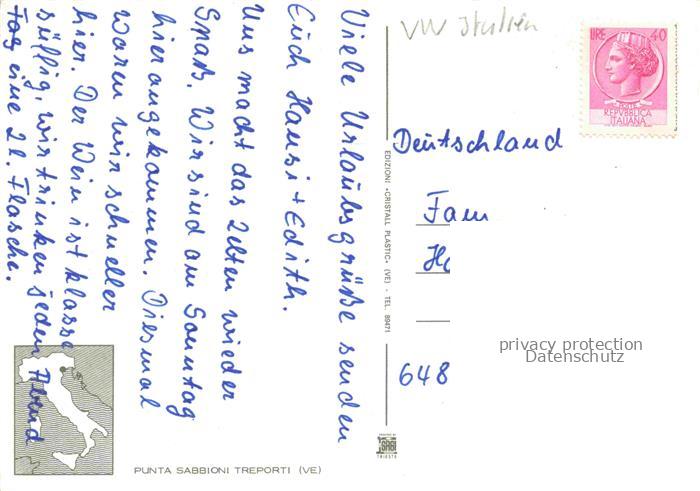 Viele Urlaubsgrüße senden
Euch Hansi + Edith.
Uns macht das Zelten wieder
Spaß. Wir sind am Sonntag
hier angekommen. Diesmal
waren wir schneller
hier. Der Wein ist klasse
süffig, wir trinken jeden Abend
Tag eine 2 l. Flasche.
PUNTA SABBIONI TREPORTI (VE)
EDIZIONI «CRISTALL PLASTIC» (VE) - TEL. 89471
SABI
TRIESTE
VW Italien
LIRE 40
POSTE
REPVBBLICA
ITALIANA
Deutschland
Fam
H
648
privacy protection
Datenschutz